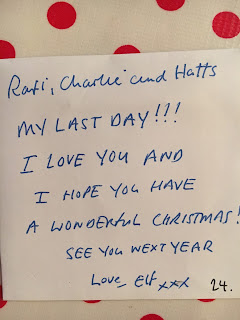 Rafi, Charlie and Hatts
MY LAST DAY!!!
I LOVE YOU AND
I HOPE YOU HAVE
A WONDERFUL CHRISTMAS!
SEE YOU NEXT YEAR
Love, Elf xxx
24.